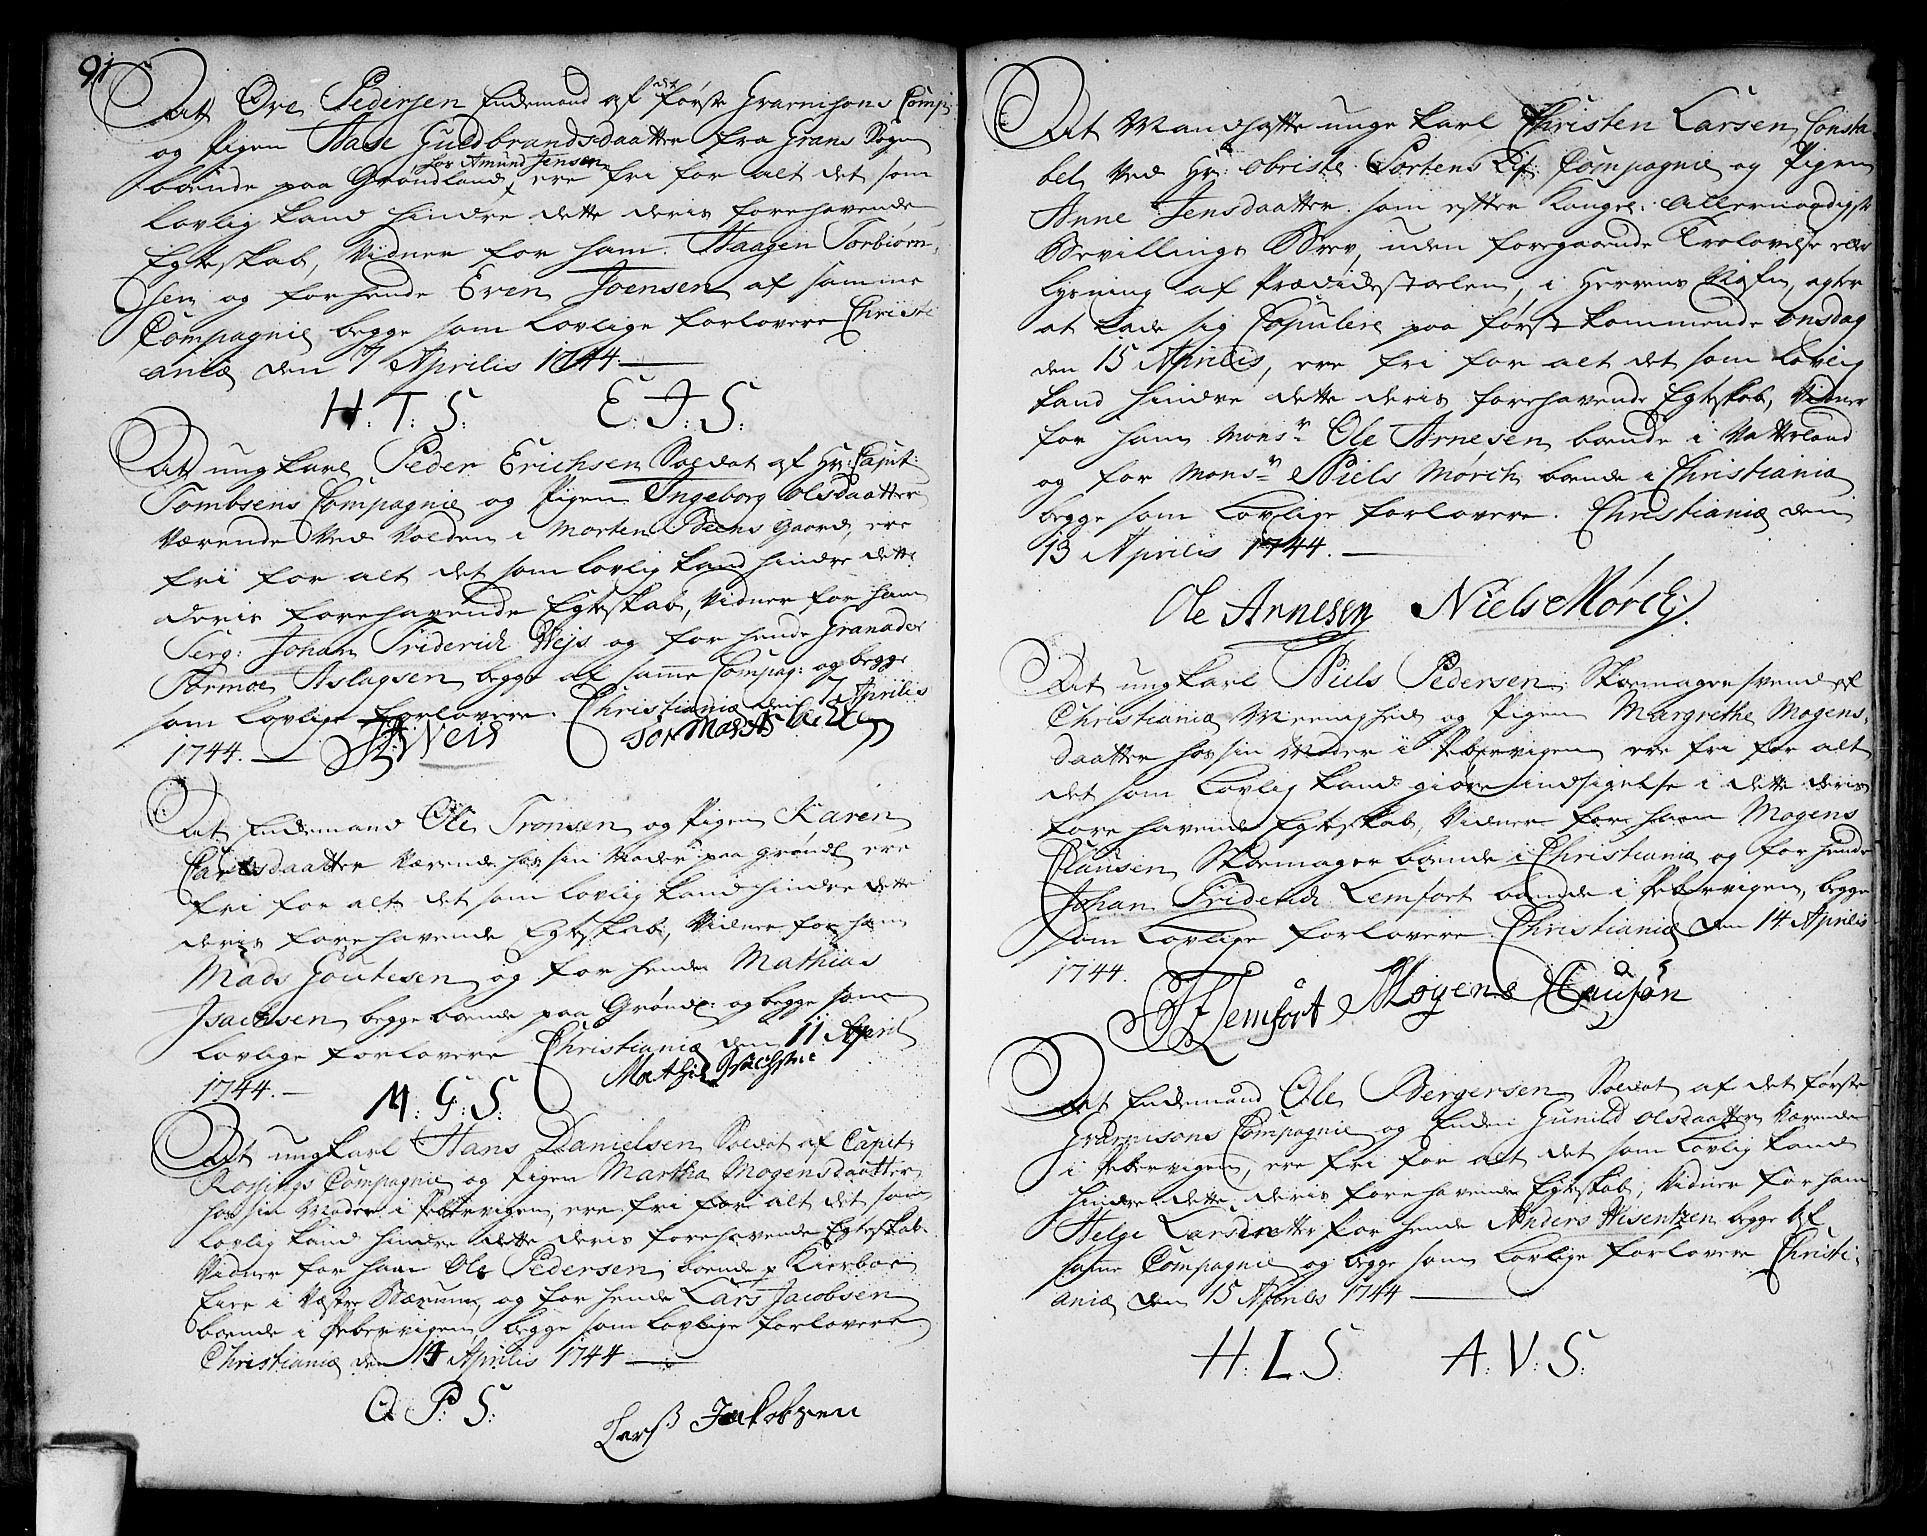 91
At Ove Pedersen Enkemand af det første Grarnisons Comp:
og Pigen Aase Guldbrandsdaatter fra Grans Sogn
boende paa Grønland hos Amund Jensen ere fri for alt det som
lovlig kand hindre dette deris forehavende
Egteskab, Vidner for ham Haagen Torbiørn-
sen og for hende Even Joensen af samme
Compagnie begge som lovlige forlovere Christi
aniæ den 7 Aprilis 1744
H. T. S. E: J: S:
At ung karl Peder Erichsen Soldat af Hr: Capit:
Tombsens Compagnie og Pigen Ingeborg Olsdaatter
Værende Ved Volden i Morten Beens Gaard, ere
fri for alt det som lovlig kand hindre dette
deris forehavende Egteskab, Vidner for ham
Serg: Johan Friderich Wejs og for hende Granader
Tormoe Aslagsen begge af samme Compag: og begge
som lovlige forlovere. Christianiæ den 7 Aprilis
1744. JFWeis Tormo Aslachsen
At Enkemand Ole Tronsen og Pigen Karen
Carlsdaatter Værende hos sin Moder paa Grønl: ere
fri for alt det som lovlig kand hindre dette
deris forehavende Egteskab, Vidner for ham
Mads Goutesen og for hende Mathias
Isachsen begge boende paa Grønl: og begge som
lovlige forlovere Christianiæ den 11 April
1744. M: G: S: Mathis Isachsen
At ung karl Hans Danielsen Soldat af Capit:
Rossings Compagnie og Pigen Martha Mogensdaatter
hos sin Moder i Pebervigen, ere fri for alt det som
lovlig kand hindre dette deris forehavende Egteskab
Vidner for ham Ole Pedersen boende p Kierboe
Eire i Vestre Bærum, og for hende Lars Jacobsen
boende i Pebervigen begge som lovlige forlovere
Christianiæ den 14 Aprilis 1744
O. P: S: Larß Jakobsen
At Mandhafte unge karl Christen Larsen Consta-
bel Ved Hr: Obriste Bortens Lif Compagnie og Pigen
Anne Jensdaatter som efter Kongel: Allernaadigste
Bevillings Brev, uden foregaaende Trolovelse eller
Lysning af Prædichestoelen, i Herrens Nafn, agter
at lade sig Copulere paa første kommende Onsdag
den 15 Aprilis, ere fri for alt det som lovlig
kand hindre dette deris forehavende Egteskab, Vidner
for ham Monsr Ole Arnesen boende i Vatterland
og for Monsr Niels Mørch boende i Christiania
begge som Lovlige forlovere. Christianiæ den
13 Aprilis 1744.
Ole Arnesen Niels Mørch.
At ung karl Niels Pedersen Skoemager svend af
Christianiæ Meenighed og Pigen Margrethe Mogens-
daatter hos sin Moder i Pebervigen ere fri for alt
det som Lovlig kand giøre indsigelse i dette deris
forehavende Egteskab, Vidner for ham Mogens
Clausen Skoemager boende i Christiania og for hende
Johan Friderich Lemfort boende i Pebervigen, begge
som Lovlige forlovere Christianiæ den 14 Aprilis
1744.
JFLemfort Mogens Clausøn
At Enkemand Ole Bergersen Soldat af det første
Grarnisons Compagnie og Enken Gunild Olsdaatter Værende
i Pebervigen, ere fri for alt det som Lovlig kand
hindre dette deris forehavende Egteskab, Vidner for ham
Helge Larsen for hende Anders Visentzen begge af
samme Compagnie og begge som Lovlige forlovere Christi-
aniæ den 15 Aprilis 1744
H: L S. A: V: S: